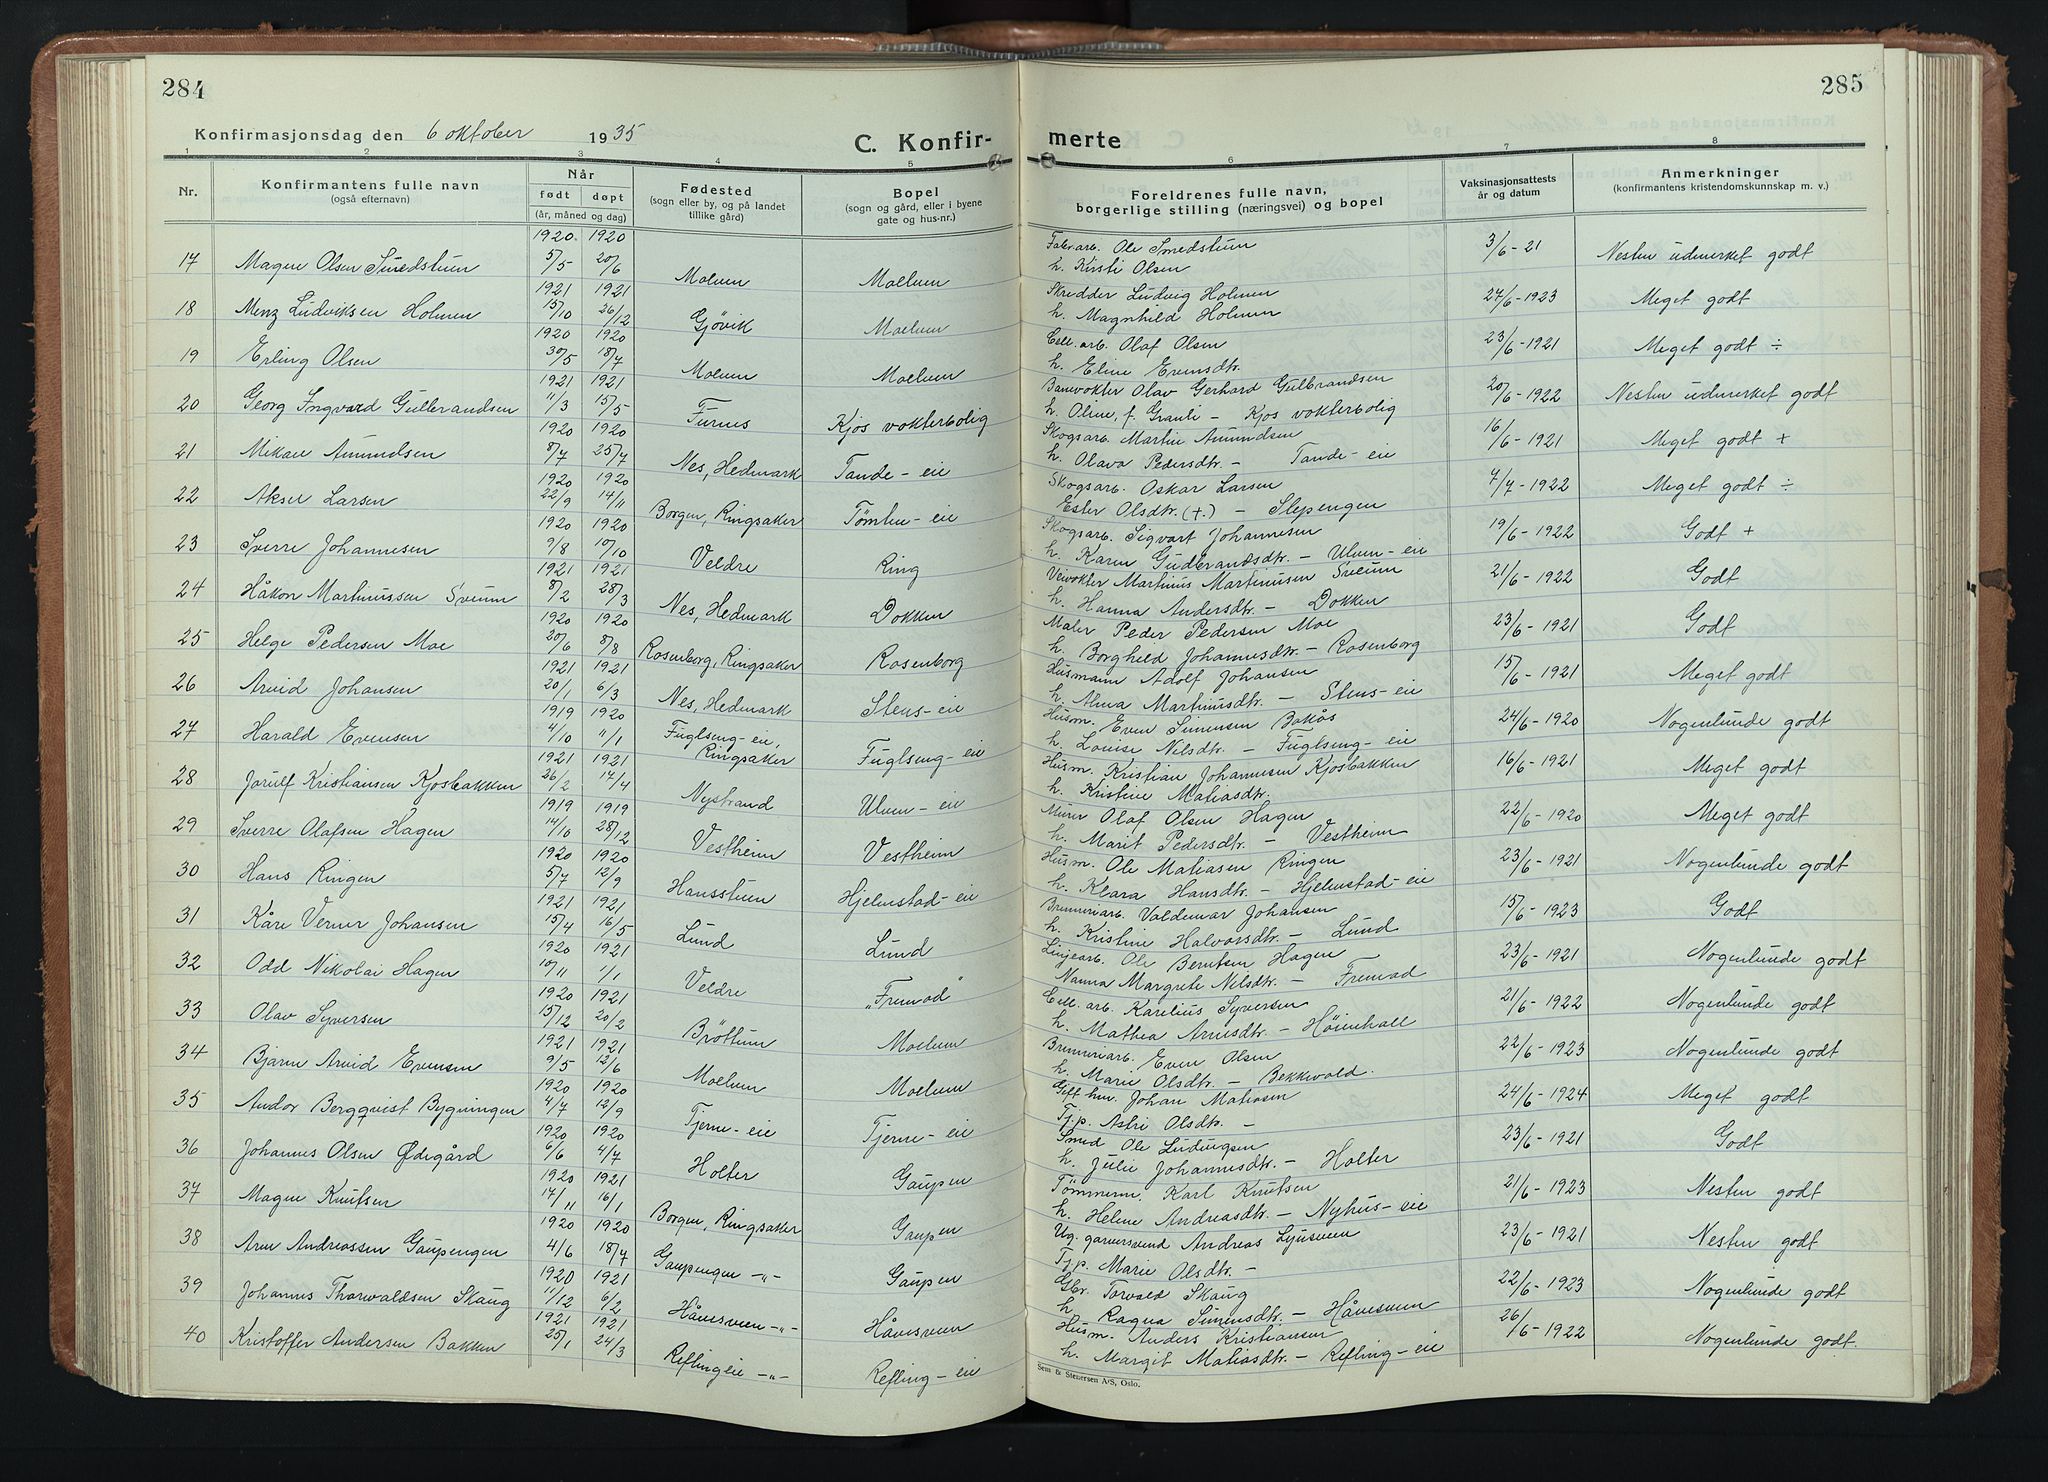 284
285
Konfirmasjonsdag den 6 oktober 1935
C. Konfir-
merte
1 2 3 4 5 6 7 8
Nr.
Konfirmantens fulle navn
(også efternavn)
Når
født døpt
(år, måned og dag)
Fødested
(sogn eller by, og på landet
tillike gård)
Bopel
(sogn og gård, eller i byene
gate og hus-nr.)
Foreldrenes fulle navn,
borgerlige stilling (næringsvei) og bopel
Vaksinasjonsattests
år og datum
Anmerkninger
(konfirmantens kristendomskunnskap m. v.)
17 Magne Olsen Smedstuen 1920 5/5 1920 20/6 Moelven Moelven Fabr.arb. Ole Smedstuen 3/6-21 Nesten udmerket godt
h. Kirsti Olsen
18 Menz Ludviksen Holmen 1921 15/10 1921 26/12 Gjøvik Moelven Skredder Ludvig Holmen 27/6-1923 Meget godt
h. Magnhild Holmen
19 Erling Olsen 1920 30/5 1920 18/7 Moelven Moelven Cell.arb. Olaf Olsen 23/6-1921 Meget godt ÷
h. Eline Evensdtr.
20 Georg Ingvard Gulbrandsen 1921 11/3 1921 15/5 Furnes Kjos vokterbolig Banevokter Olav Gerhard Gulbrandsen 20/6-1922 Nesten udmerket godt
h. Oline, f. Granli - Kjos vokterbolig
21 Mikael Amundsen 1920 8/7 1920 25/7 Nes, Hedmark Tande-eie Skogsarb. Martin Amundsen 16/6-1921 Meget godt +
h. Olava Pedersdtr. - Tande-eie
22 Aksel Larsen 1920 22/9 1920 14/11 Borgen, Ringsaker Tømten-eie Skogsarb. Oskar Larsen 7/7-1922 Meget godt ÷
Ester Olsdtr. (+.) - Slepengen
23 Sverre Johannesen 1920 9/8 1920 10/10 Veldre Ring Skogsarb. Sigvart Johannesen 19/6-1922 Godt +
h. Karen Gudbrandsdtr. - Ulven-eie
24 Håkon Martinussen Sveum 1921 8/2 1921 28/3 Nes, Hedmark Dokken Veivokter Martinus Martinusen Sveum 21/6-1922 Godt
h. Hanna Andersdtr. - Dokken
25 Helge Pedersen Moe 1920 20/6 1920 8/8 Rosenborg, Ringsaker Rosenborg Maler Peder Pedersen Moe 23/6-1921 Godt
h. Borghild Johannesdtr. - Rosenborg
26 Arvid Johansen 1921 20/1 1921 6/3 Nes, Hedmark Stens-eie Husmann Adolf Johansen 15/6-1921 Meget godt
h. Alma Martinusdtr. - Stens-eie
27 Harald Evensen 1919 4/10 1920 11/1 Fuglseng-eie, Ringsaker Fuglseng-eie Husm. Even Simensen Bakås 24/6-1920 Nogenlunde godt
h. Louise Nilsdtr. - Fuglseng-eie
28 Jorulf Kristiansen Kjosbakken 1921 26/2 1921 17/4 Nystrand Ulven-eie Husm. Kristian Johannesen Kjosbakken 16/6-1921 Meget godt
h. Kristine Matiasdtr.
29 Sverre Olafsen Hagen 1919 14/10 1919 28/12 Vestheim Vestheim Murer Olaf Olsen Hagen 22/6-1920 Meget godt
h. Marit Pedersdtr. - Vestheim
30 Hans Ringen 1920 5/7 1920 12/9 Hansstuen Hjelmstad-eie Husm. Ole Matiasen Ringen 23/6-1921 Nogenlunde godt
h. Klara Hansdtr. - Hjelmstad-eie
31 Kåre Verner Johansen 1921 15/4 1921 16/5 Lund Lund Brenneriarb. Valdemar Johansen 15/6-1923 Godt
h. Kristine Halvorsdtr. - Lund
32 Odd Nikolai Hagen 1920 10/11 1921 1/1 Veldre „Fremad" Linjearb. Ole Berntsen Hagen 23/6-1921 Nogenlunde godt
Nanna Margrete Nilsdtr. - Fremad
33 Olav Syversen 1920 15/12 1921 20/2 Brøttum Moelven Cell.arb. Karelius Syversen 21/6-1922 Nogenlunde godt
h. Mathea Arnesdtr. - Høienhall
34 Bjarne Arvid Evensen 1921 9/5 1921 12/6 Moelven Moelven Brenneriarb. Even Olsen 22/6-1923 Nogenlunde godt
h. Marie Olsdtr. - Bekkvold.
35 Andor Bergqvist Bygningen 1920 4/7 1920 12/9 Tjerne-eie Tjerne-eie Gift hm. Johan Matiasen 24/6-1924 Meget godt
Tj.p. Astri Olsdtr. -
36 Johannes Olsen Ødegård 1920 6/6 1920 4/7 Holter Gaupen Smed Ole Ludvigsen 23/6-1921 Godt
h. Julie Johannesdtr. - Holter
37 Magne Knutsen 1920 17/11 1921 16/1 Borgen, Ringsaker Gaupen Tømmerm. Karl Knutsen 21/6-1923 Nesten godt
h. Helene Andreasdtr. - Nyhus-eie
38 Arne Andreassen Gaupengen 1920 4/6 1920 18/7 Gaupengen -"- Gaupen Ug. garversvend Andreas Ljusveen 23/6-1921 Nesten godt
Tj.p. Marie Olsdtr. -
39 Johannes Thorvaldsen Skaug 1920 11/12 1921 6/2 Håvesveen -"- Håvesveen Gbr. Torvald Skaug 22/6-1923 Nogenlunde godt
h. Ragna Simensdtr. - Håvesveen
40 Kristoffer Andersen Bakken 1921 25/1 1921 24/3 Reflingeie -"- Refling-eie Husm. Anders Kristiansen 26/6-1922 Nogenlunde godt.
h. Margit Matiasdtr. - Refling-eie
Sem & Stenersen A/S, Oslo.